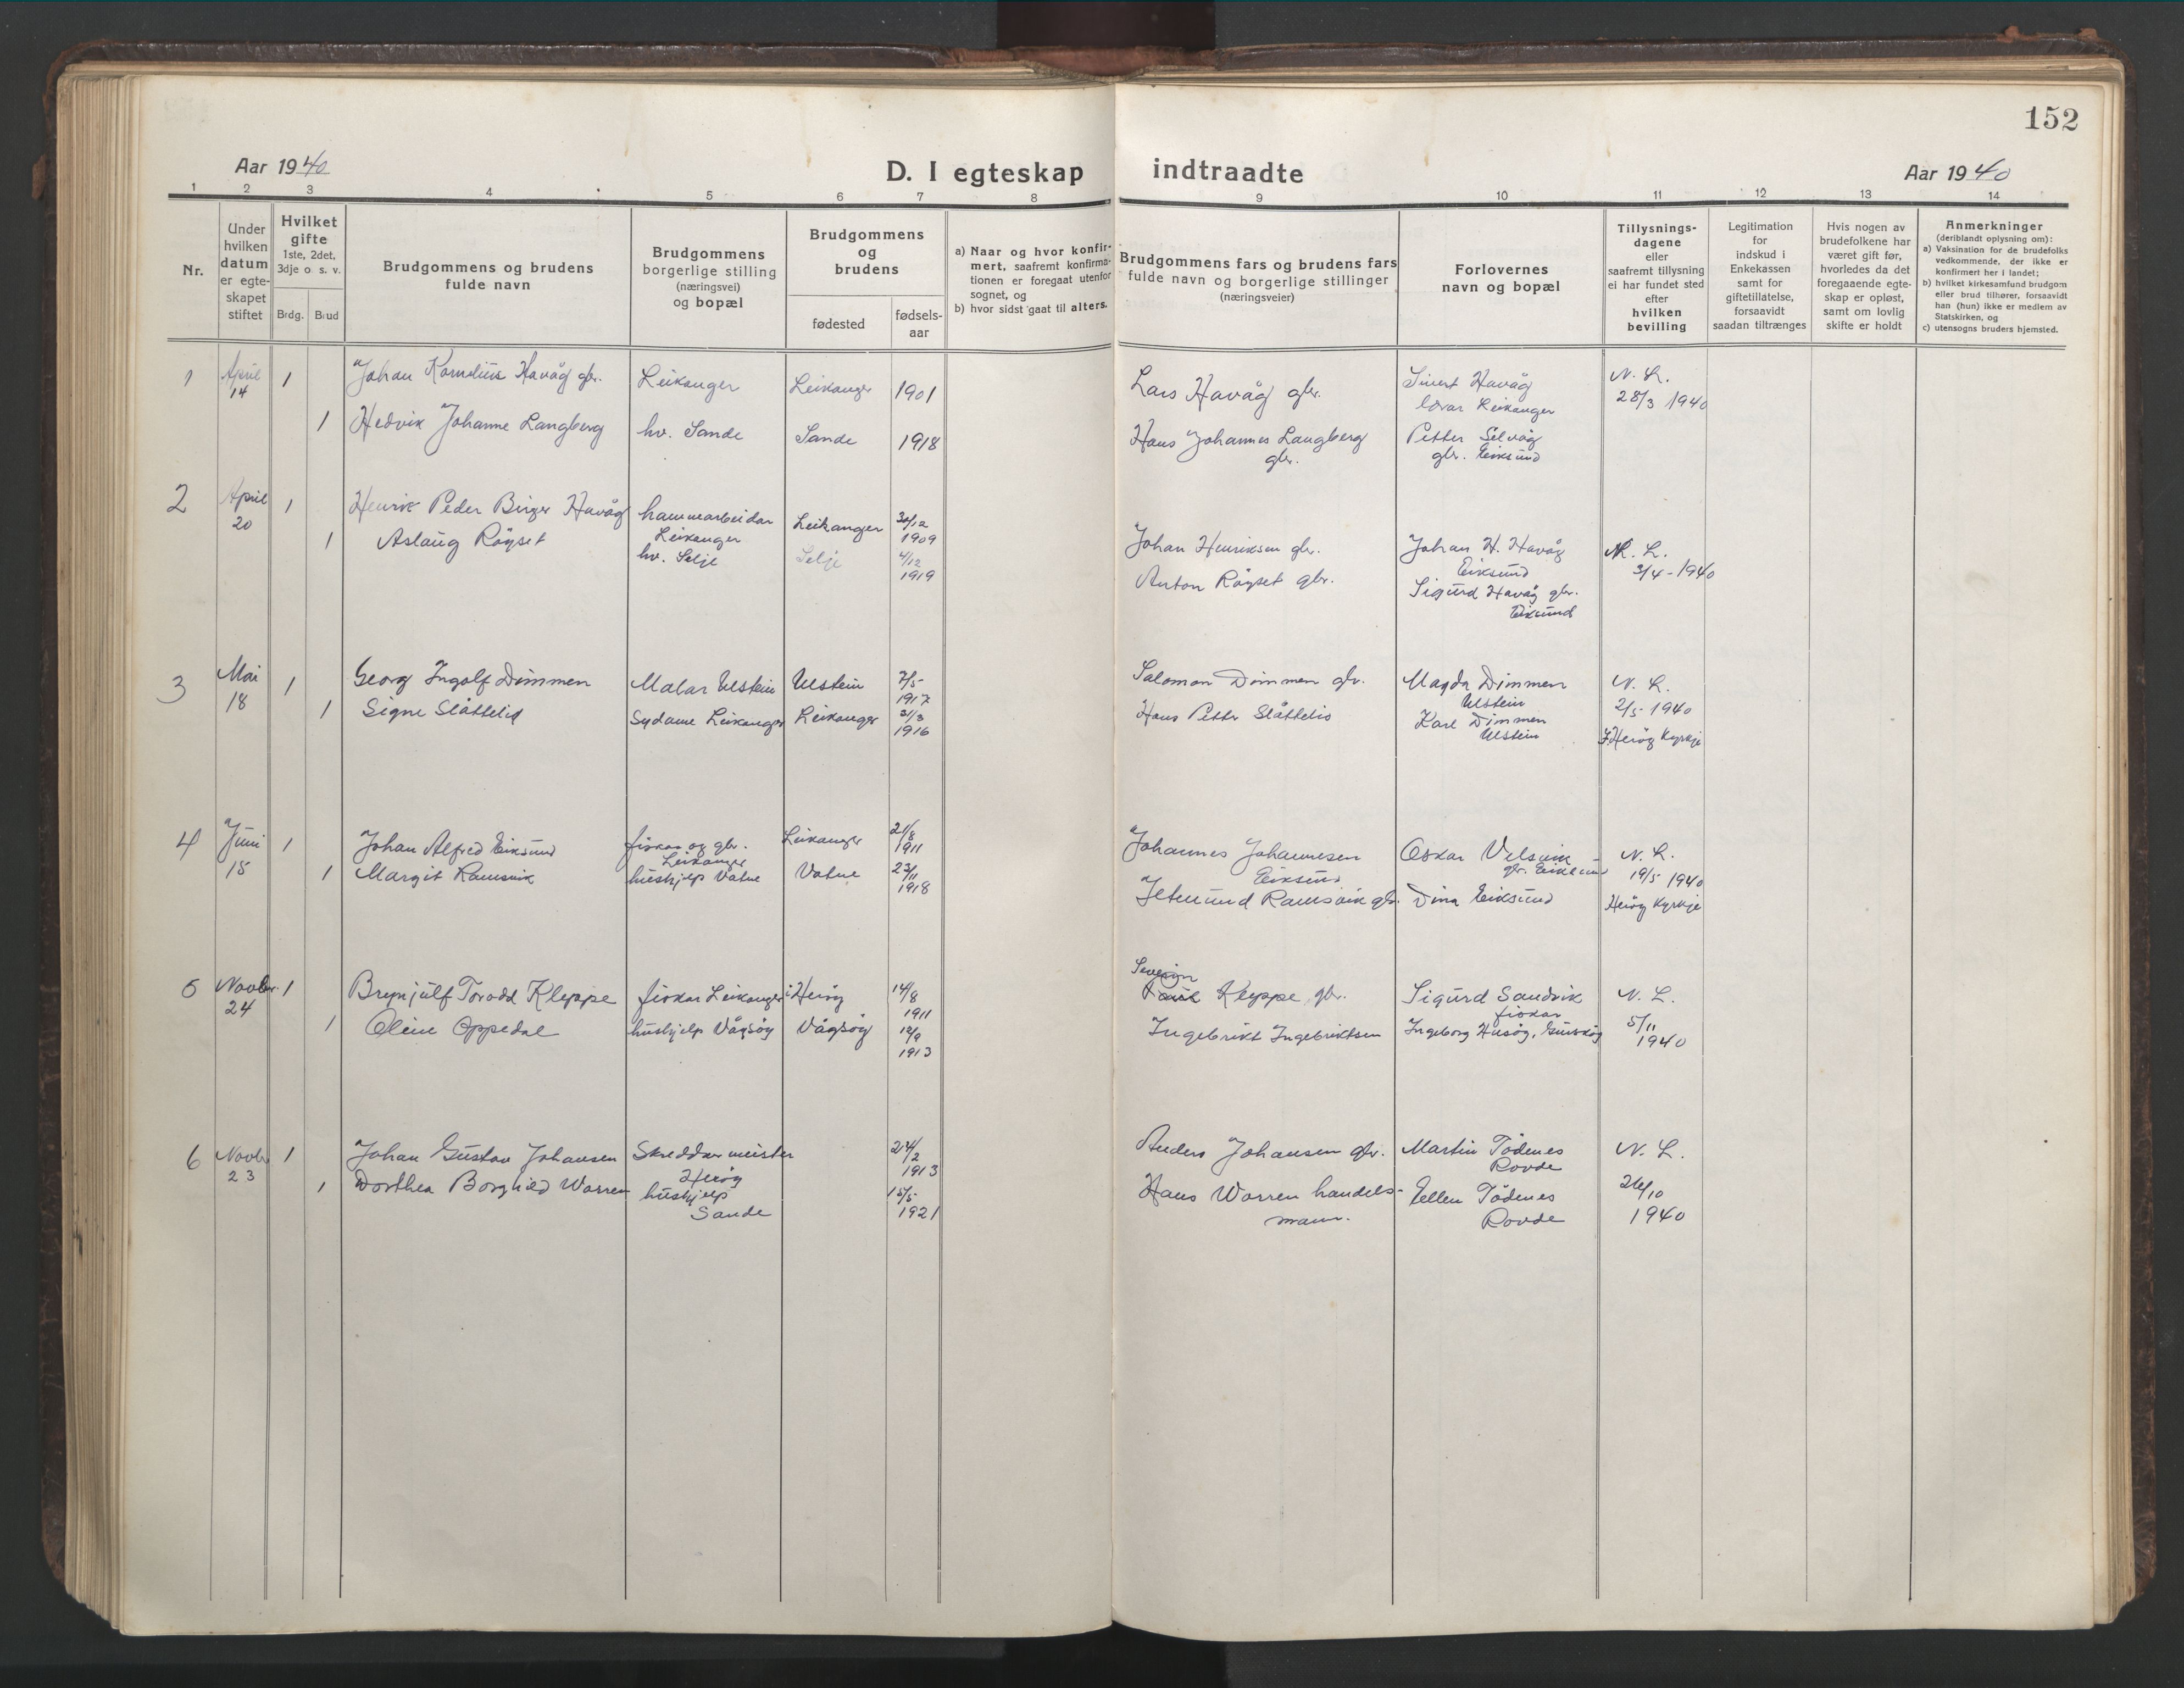 152
Aar 1940
D. I egteskap indtraadte
Aar 1940
1 2 3 4 5 6 7 8 9 10 11 12 13 14
Nr.
Under hvilken datum er egte-skapet stiftet
Hvilket gifte 1ste, 2det, 3dje o. s. v.
Brdg. Brud
Brudgommens og brudens fulde navn
Brudgommens borgerlige stilling (næringsvei) og bopæl
Brudgommens og brudens
fødested
fødsels-aar
a) Naar og hvor konfir-mert, saafremt konfirma-tionen er foregaat utenfor sognet, og
b) hvor sidst gaat til alters.
Brudgommens fars og brudens fars fulde navn og borgerlige stillinger (næringsveier)
Forlovernes navn og bopæl
Tillysnings-dagene eller saafremt tillysning ei har fundet sted efter hvilken bevilling
Legitimation for indskud i Enkekassen samt for giftetillatelse, forsaavidt saadan tiltrænges
Hvis nogen av brudefolkene har været gift før, hvorledes da det foregaaende egte-skap er opløst, samt om lovlig skifte er holdt
Anmerkninger (deriblandt oplysning om):
a) Vaksination for de brudefolks vedkommende, der ikke er konfirmert her i landet;
b) hvilket kirkesamfund brudgom eller brud tilhører, forsaavidt han (hun) ikke er medlem av Statskirken, og
c) utensogns bruders hjemsted.
1 April 14 1 Johan Kornelius Havåg gbr. Leikanger Leikanger 1901 Lars Havåg gbr. Sivert Havåg N. L.
lærar Leikanger 28/3 1940
1 Hedvik Johanne Langberg hv. Sande Sande 1918 Hans Johannes Langberg gbr. Petter Selvåg
gbr. Eiksund
2 April 20 1 Henrik Peder Birger Havåg hamnarbeidar Leikanger Leikanger 30/12 1909 Johan Henriksen gbr. Johan H. Havåg Eiksund N. L.
3/4-1940
1 Aslaug Røyset hv. Selje Selje 4/12 1919 Anton Røyset gbr. Sigurd Havåg gbr.
Eiksund
3 Mai 18 1 Georg Ingolf Dimmen Malar Ulstein Ulstein 7/5 1917 Salomon Dimmen gbr. Magda Dimmen Ulstein N. L.
2/5-1940
1 Signe Slåttelid Sydame Leikanger Leikanger 31/3 1916 Hans Petter Slåttelid Karl Dimmen Ulstein
Herøy Kyrkje
4 Juni 15 1 Johan Alfred Eiksund fiskar og gbr. Leikanger Leikanger 21/8 1911 Johannes Johannesen Eiksund Oskar Velsvik gbr. Eiksund N. L.
19/5 1940
1 Margit Ramsvik hushjelp Vatne Vatne 23/11 1918 Jetmund Ramsvik gbr. Dina Eiksund Herøy Kyrkje
5 Novbr. 24 1 Brynjulf Torodd Kleppe fiskar Leikanger i Herøy 14/8 1911 Severin Kleppe gbr. Sigurd Sandvik fiskar N. L.
1 Oline Oppedal hushjelp Vågsøy Vågsøy 12/9 1913 Ingebrikt Ingebriktsen Ingeborg Husøy, Gurskøy 5/11 1940
6 Novbr 23 1 Johan Gustav Johansen Skreddarmeister Herøy 24/2 1913 Anders Johansen gbr. Martin Tødenes Rovde N. L.
1 Dorthea Borghild Warren hushjelp Sande 15/5 1921 Hans Warren handels-mann. Ellen Tødenes Rovde 26/10 1940